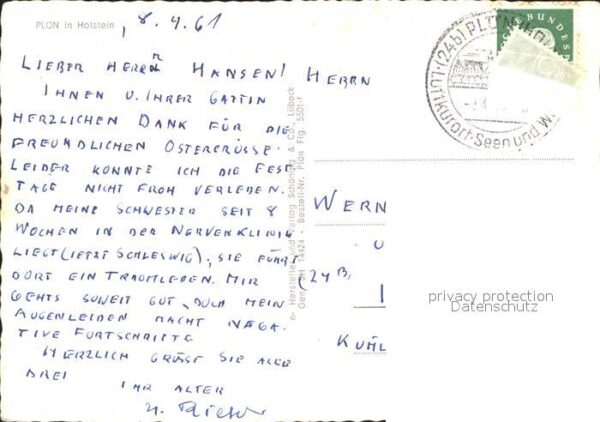 PLÖN in Holstein
8.4.61
LIEBER HERR HANSEN! HERRN
IHNEN U. IHRER GATTIN
HERZLICHEN DANK FÜR DIE
FREUNDLICHEN OSTERGRÜSSE.
LEIDER KONNTE ICH DIE FEST
TAGE NICHT FROH VERLEBEN.
DA MEINE SCHWESTER SEIT 8
WOCHEN IN DER NERVENKLINIK
LIEGT (JETZT SCHLESWIG), SIE FÜHRT
DORT EIN TRAUMLEBEN. MIR
GEHTS SOWEIT GUT, DOCH MEIN
AUGENLEIDEN MACHT NEGA
TIVE FORTSCHRITTE
HERZLICH GRÜSST SIE ALLE
DREI
IHR ALTER
Hersteller und Verlag Schöning & Co., Lübeck
Gen. SH 14424 · Bestell-Nr. Plön Flg. 5501-f
WERN
U
(24B)
KUHL
(24b) PLÖN (HOL
LUFTKurort · Seen und W
BUNDES
privacy protection
Datenschutz